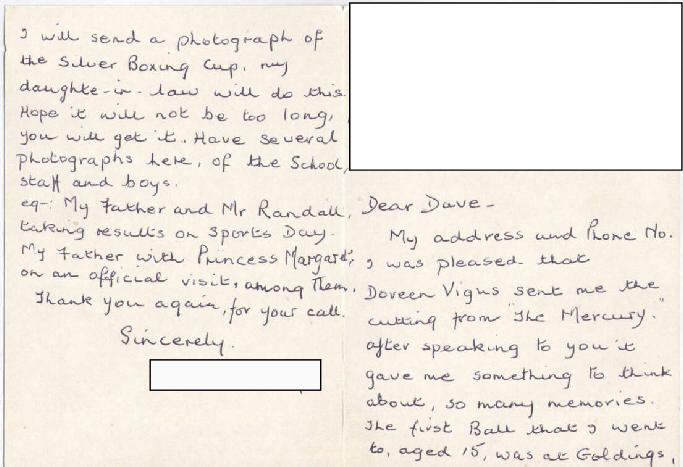 I will send a photograph of
the Silver Boxing Cup. my
daughte-in-law will do this.
Hope it will not be too long,
you will get it. Have several
photographs here, of the School,
staff and boys.
eg-: My Father and Mr Randall,
taking results on Sports Day.
My Father with Princess Margaret,
on an official visit, among Them.
Thank you again, for your call.
Sincerely.
Dear Dave -
My address and Phone No.
I was pleased that
Doreen Vigus sent me the
cutting from "The Mercury."
after speaking to you it
gave me something to think
about, so many memories.
The first Ball that I went
to, aged 15, was at Goldings,